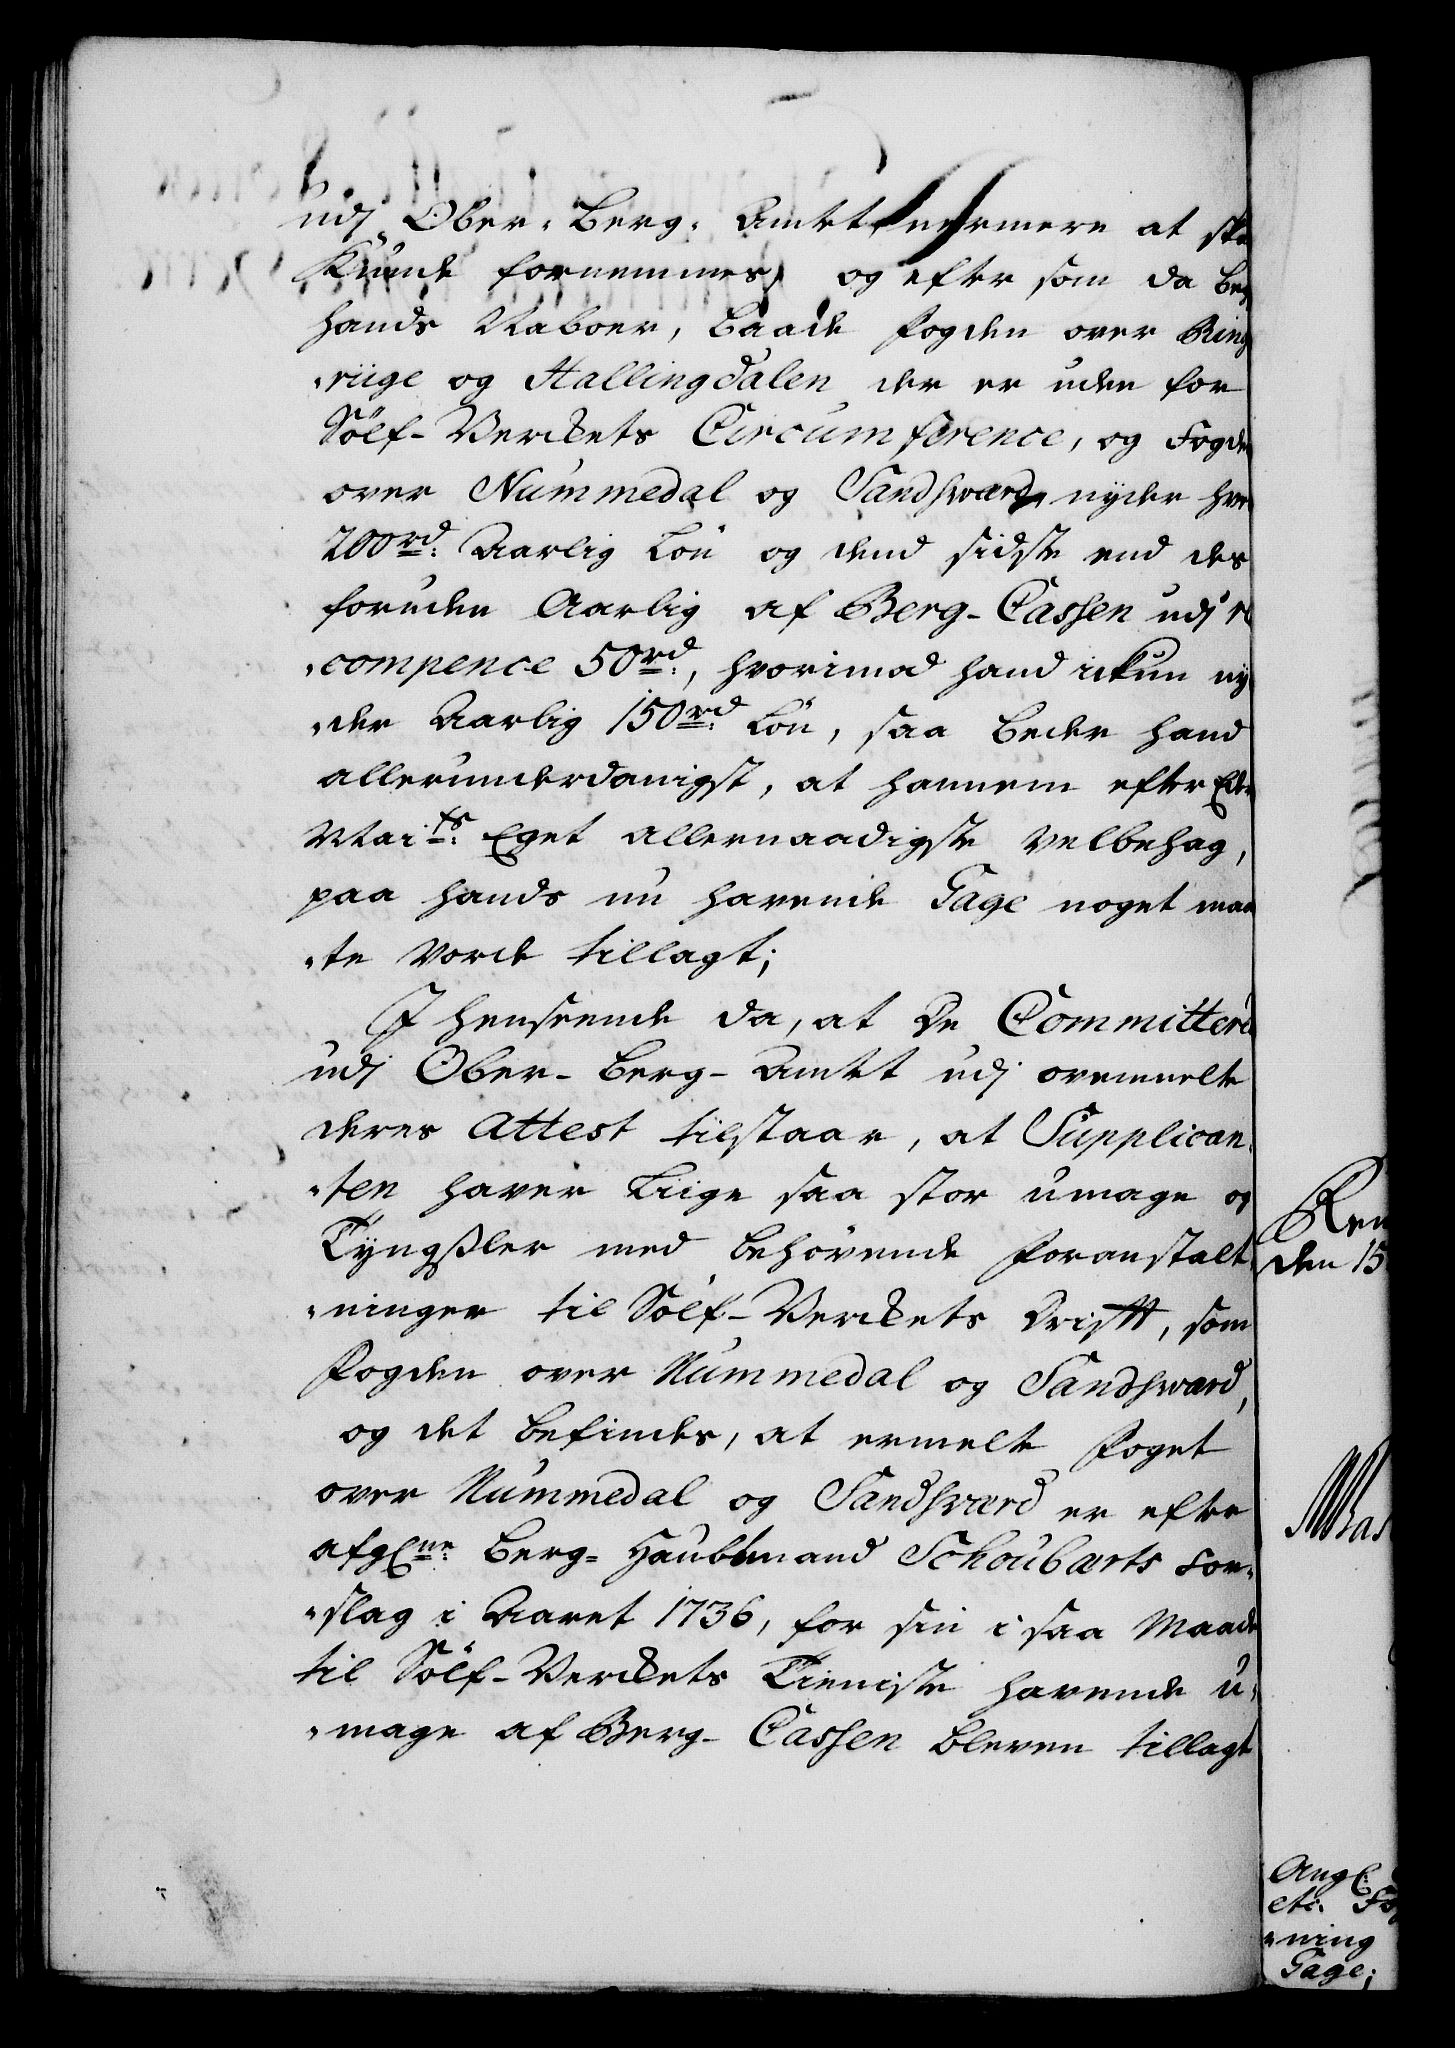 udj Ober-Berg-Amtet nermere at
Kunde fornemmes, og efter som da
hands Naboer, baade Fogden over Ring
-riige og Hallingdalen der er uden for
Sölf-Verckets Circumference, og Fogden
over Nummedal og Sandsværd, nyder hver
200rd: Aarlig Løn og dend sidste end des
foruden Aarlig af Berg-Cassen udj re
-compence 50rd:, hvorimod hand ickun ny
-der Aarlig 150rd: Løn, saa beder hand
allerunderdanigst, at hannem efter Eders
Maits: Eget allernaadigste velbehag,
paa hands nu havende Gage noget maa
-te vorde tillagt;
J henseende da, at De Committerede
udj Ober-Berg-Amtet udj ovenmelte
deres Attest tilstaar, at Supplican-
-ten haver Liige saa stor umage og
Tyngßler med behøvende Foranstalt-
-ninger til Sölf-Verckets Drifft, som
Fogden over Nummedal og Sandsværd,
og det befindes, at ermelte Foget
over Nummedal og Sandsværd er efter
afgl:ne Berg-Haubtmand Schoubarts For-
-slag i Aaret 1736, for sin i saa Maade
til Sölf-Verckets Tieniste havende u-
-mage af Berg-Cassen bleven tillagt
Ren
den 15
Angl:
-ning
Gage;